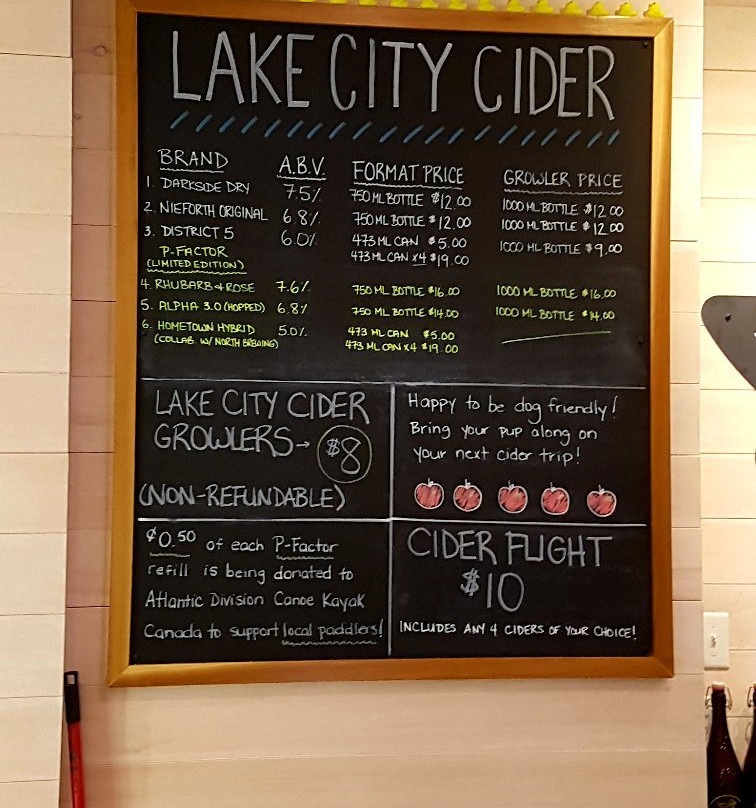 LAKE CITY CIDER
BRAND A.B.V. FORMAT PRICE GROWLER PRICE
1. DARKSIDE DRY 7.5% 750 ML BOTTLE $12.00 1000 ML BOTTLE $12.00
2. NIEFORTH ORIGINAL 6.8% 750 ML BOTTLE $12.00 1000 ML BOTTLE $12.00
3. DISTRICT 5 6.0% 473 ML CAN $5.00 1000 ML BOTTLE $9.00
473 ML CAN x4 $19.00
P-FACTOR
(LIMITED EDITION)
4. RHUBARB & ROSE 7.6% 750 ML BOTTLE $16.00 1000 ML BOTTLE $16.00
5. ALPHA 3.0 (HOPPED) 6.8% 750 ML BOTTLE $14.00 1000 ML BOTTLE $14.00
6. HOMETOWN HYBRID 5.0% 473 ML CAN $5.00
(COLLAB. W/ NORTH BREWING) 473 ML CAN x4 $19.00
LAKE CITY CIDER
GROWLERS → $8
(NON-REFUNDABLE)
Happy to be dog friendly!
Bring your pup along on
your next cider trip!
$0.50 of each P-Factor
refill is being donated to
Atlantic Division Canoe Kayak
Canada to support local paddlers!
CIDER FLIGHT
$10
INCLUDES ANY 4 CIDERS OF YOUR CHOICE!